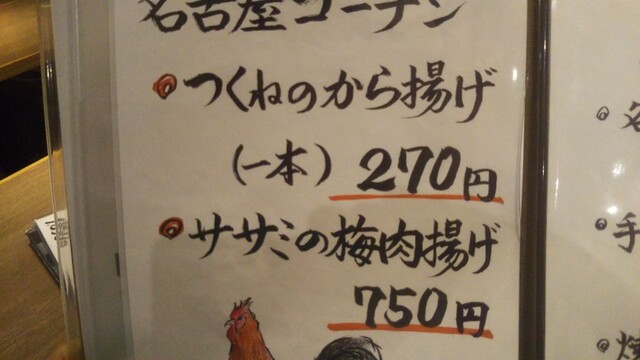 名古屋コーチン
つくねのから揚げ
(一本) 270円
ササミの梅肉揚げ
750円
手